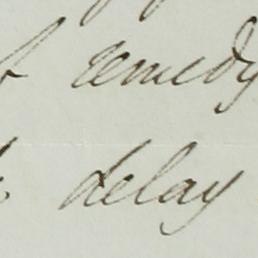 remedy
delay